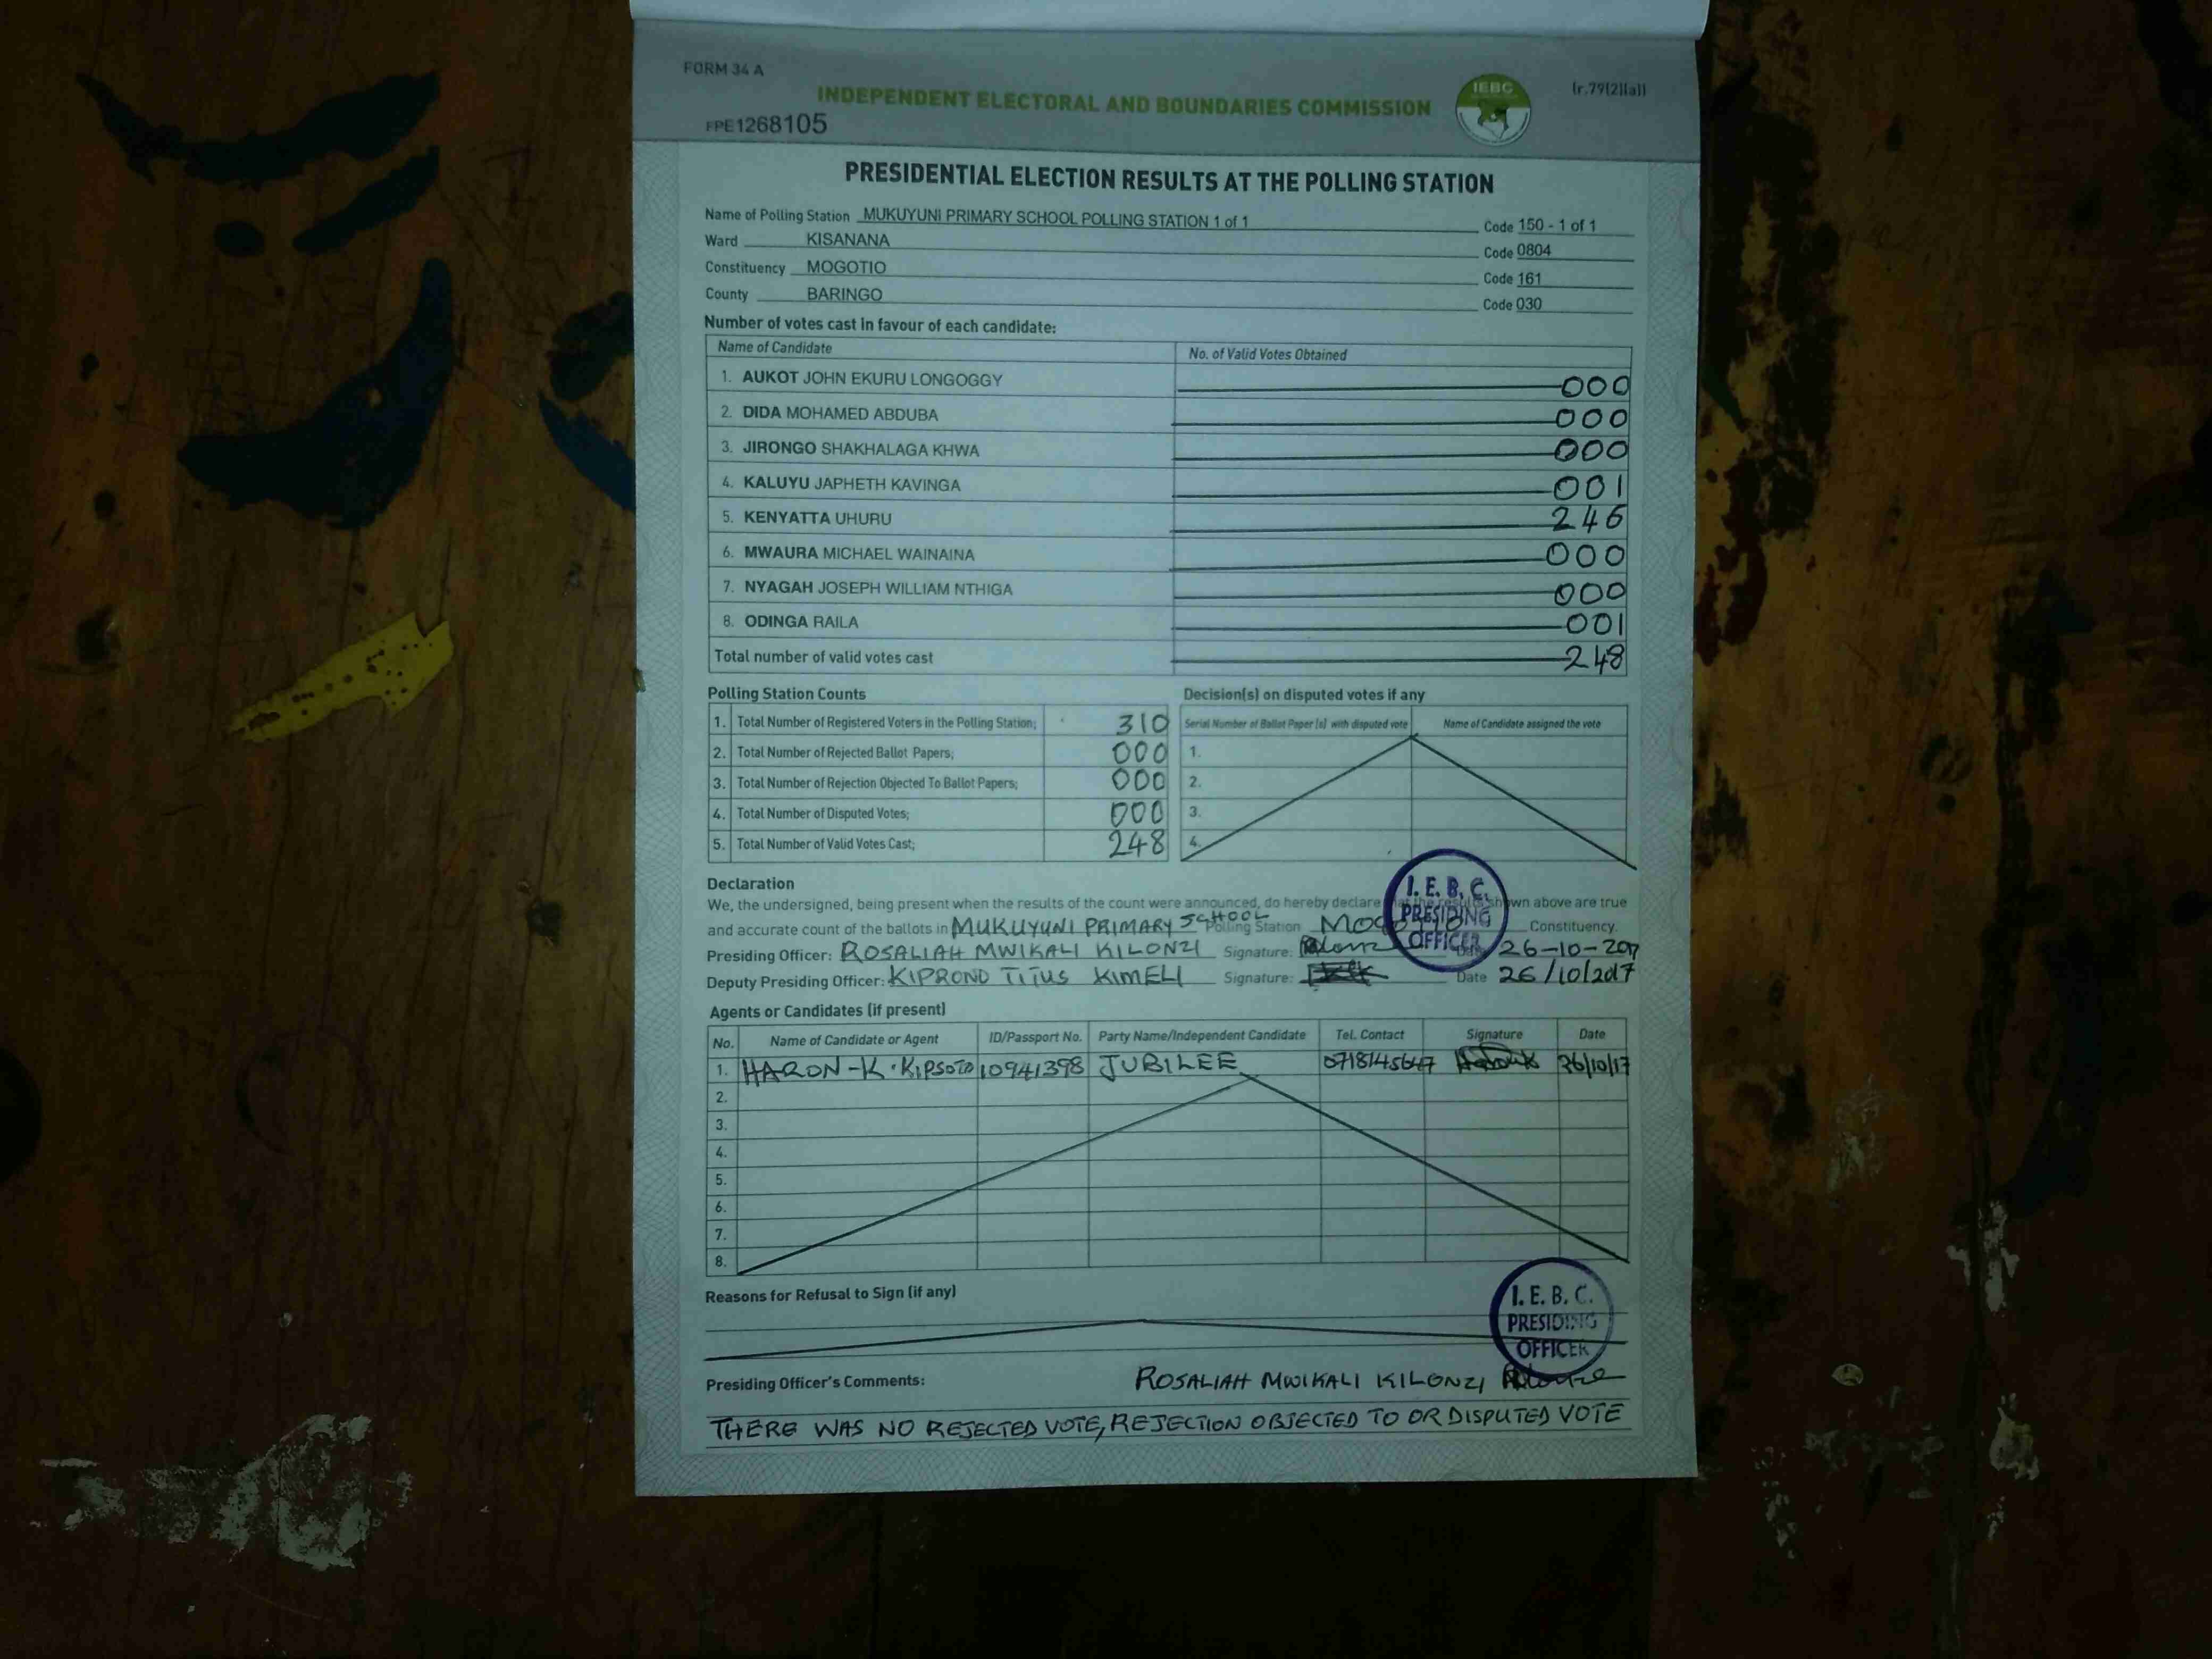 FORM 34 A
INDEPENDENT ELECTORAL AND BOUNDARIES COMMISSION
IEBC
(r.79(2)(a))
FPE1268105
PRESIDENTIAL ELECTION RESULTS AT THE POLLING STATION
Name of Polling Station MUKUYUNI PRIMARY SCHOOL POLLING STATION 1 of 1 Code 150 - 1 of 1
Ward KISANANA Code 0804
Constituency MOGOTIO Code 161
County BARINGO Code 030
Number of votes cast in favour of each candidate:
Name of Candidate No. of Valid Votes Obtained
1. AUKOT JOHN EKURU LONGOGGY 000
2. DIDA MOHAMED ABDUBA 000
3. JIRONGO SHAKHALAGA KHWA 000
4. KALUYU JAPHETH KAVINGA 001
5. KENYATTA UHURU 246
6. MWAURA MICHAEL WAINAINA 000
7. NYAGAH JOSEPH WILLIAM NTHIGA 000
8. ODINGA RAILA 001
Total number of valid votes cast 248
Polling Station Counts
1. Total Number of Registered Voters in the Polling Station; 310
2. Total Number of Rejected Ballot Papers; 000
3. Total Number of Rejection Objected To Ballot Papers; 000
4. Total Number of Disputed Votes; 000
5. Total Number of Valid Votes Cast; 248
Decision(s) on disputed votes if any
Serial Number of Ballot Paper (s) with disputed vote Name of Candidate assigned the vote
1.
2.
3.
4.
Declaration
We, the undersigned, being present when the results of the count were announced, do hereby declare that the results shown above are true
and accurate count of the ballots in MUKUYUNI PRIMARY SCHOOL Polling Station MOGOTIO Constituency.
Presiding Officer: ROSALIAH MWIKALI KILONZI Signature: Date 26-10-2017
Deputy Presiding Officer: KIPRONO TITUS KIMELI Signature: Date 26/10/2017
I. E. B. C.
PRESIDING
OFFICER
Agents or Candidates (if present)
No. Name of Candidate or Agent ID/Passport No. Party Name/Independent Candidate Tel. Contact Signature Date
1. HARON-K. 10941398 JUBILEE 26/10/17
2.
3.
4.
5.
6.
7.
8.
Reasons for Refusal to Sign (if any)
I. E. B. C.
PRESIDING
OFFICER
Presiding Officer's Comments: ROSALIAH MWIKALI KILONZI
THERE WAS NO REJECTED VOTE, REJECTION OBJECTED TO OR DISPUTED VOTE